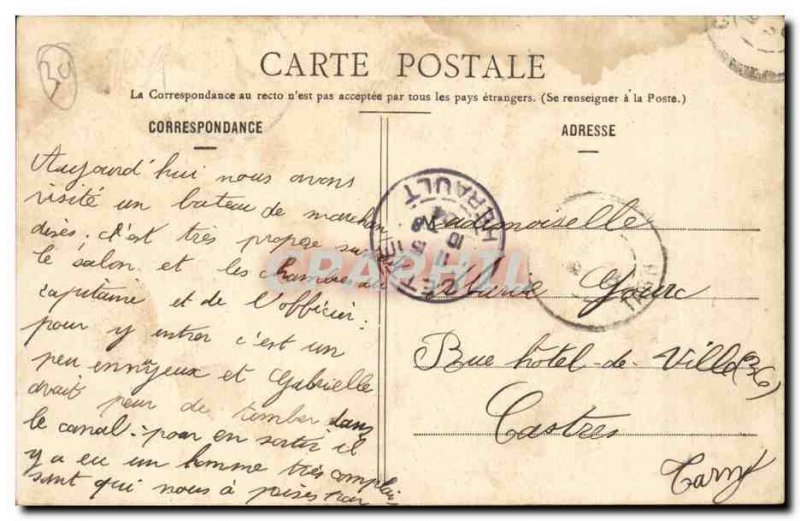 30
CARTE POSTALE
La Correspondance au recto n'est pas acceptée par tous les pays étrangers. (Se renseigner à la Poste.)
CORRESPONDANCE
Aujourd'hui nous avons
visité un bateau de marchan
dises. C'est très propre surtout
le salon et les chambres du
capitaine et de l'officier:
pour y entrer c'est un
peu ennuyeux et Gabrielle
avait peur de tomber dans
le canal: pour en sortir il
y a eu un homme très complai
sant qui nous à prises par
ADRESSE
Mademoiselle
Marie Gourc
Rue hôtel-de-Ville (36)
Castres
Tarn
CETTE
HERAULT
CPARAMA